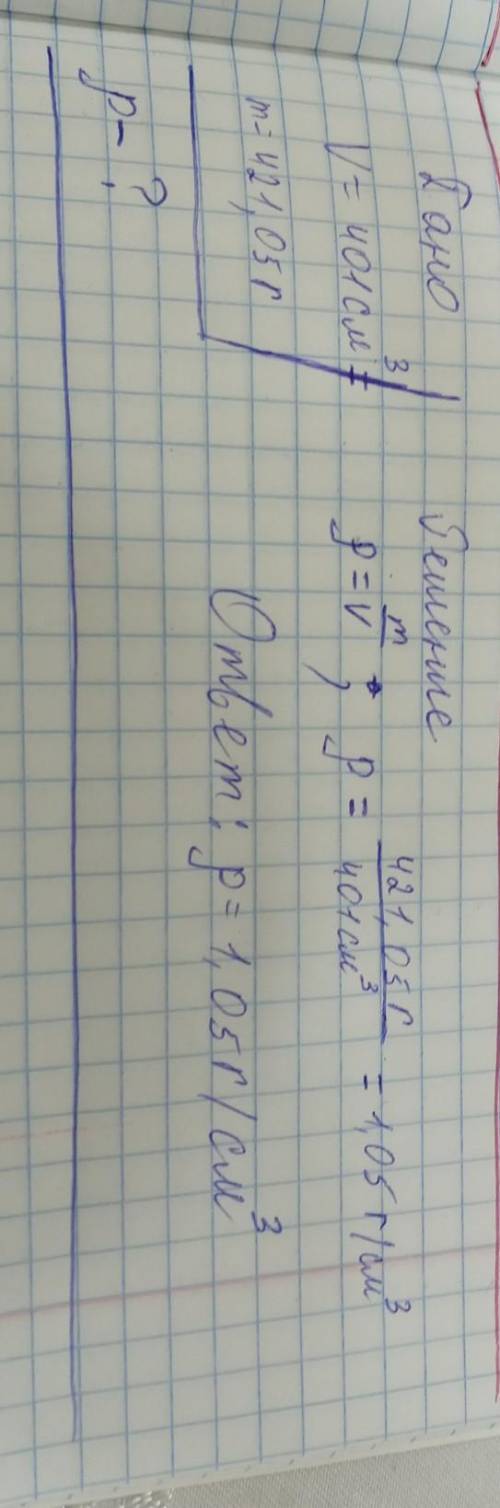 Дано
V = 401 см³
m = 421,05 г
ρ - ?
Решение
ρ = m/V ; ρ = 421,05 г / 401 см³ = 1,05 г/см³
Ответ: ρ = 1,05 г/см³